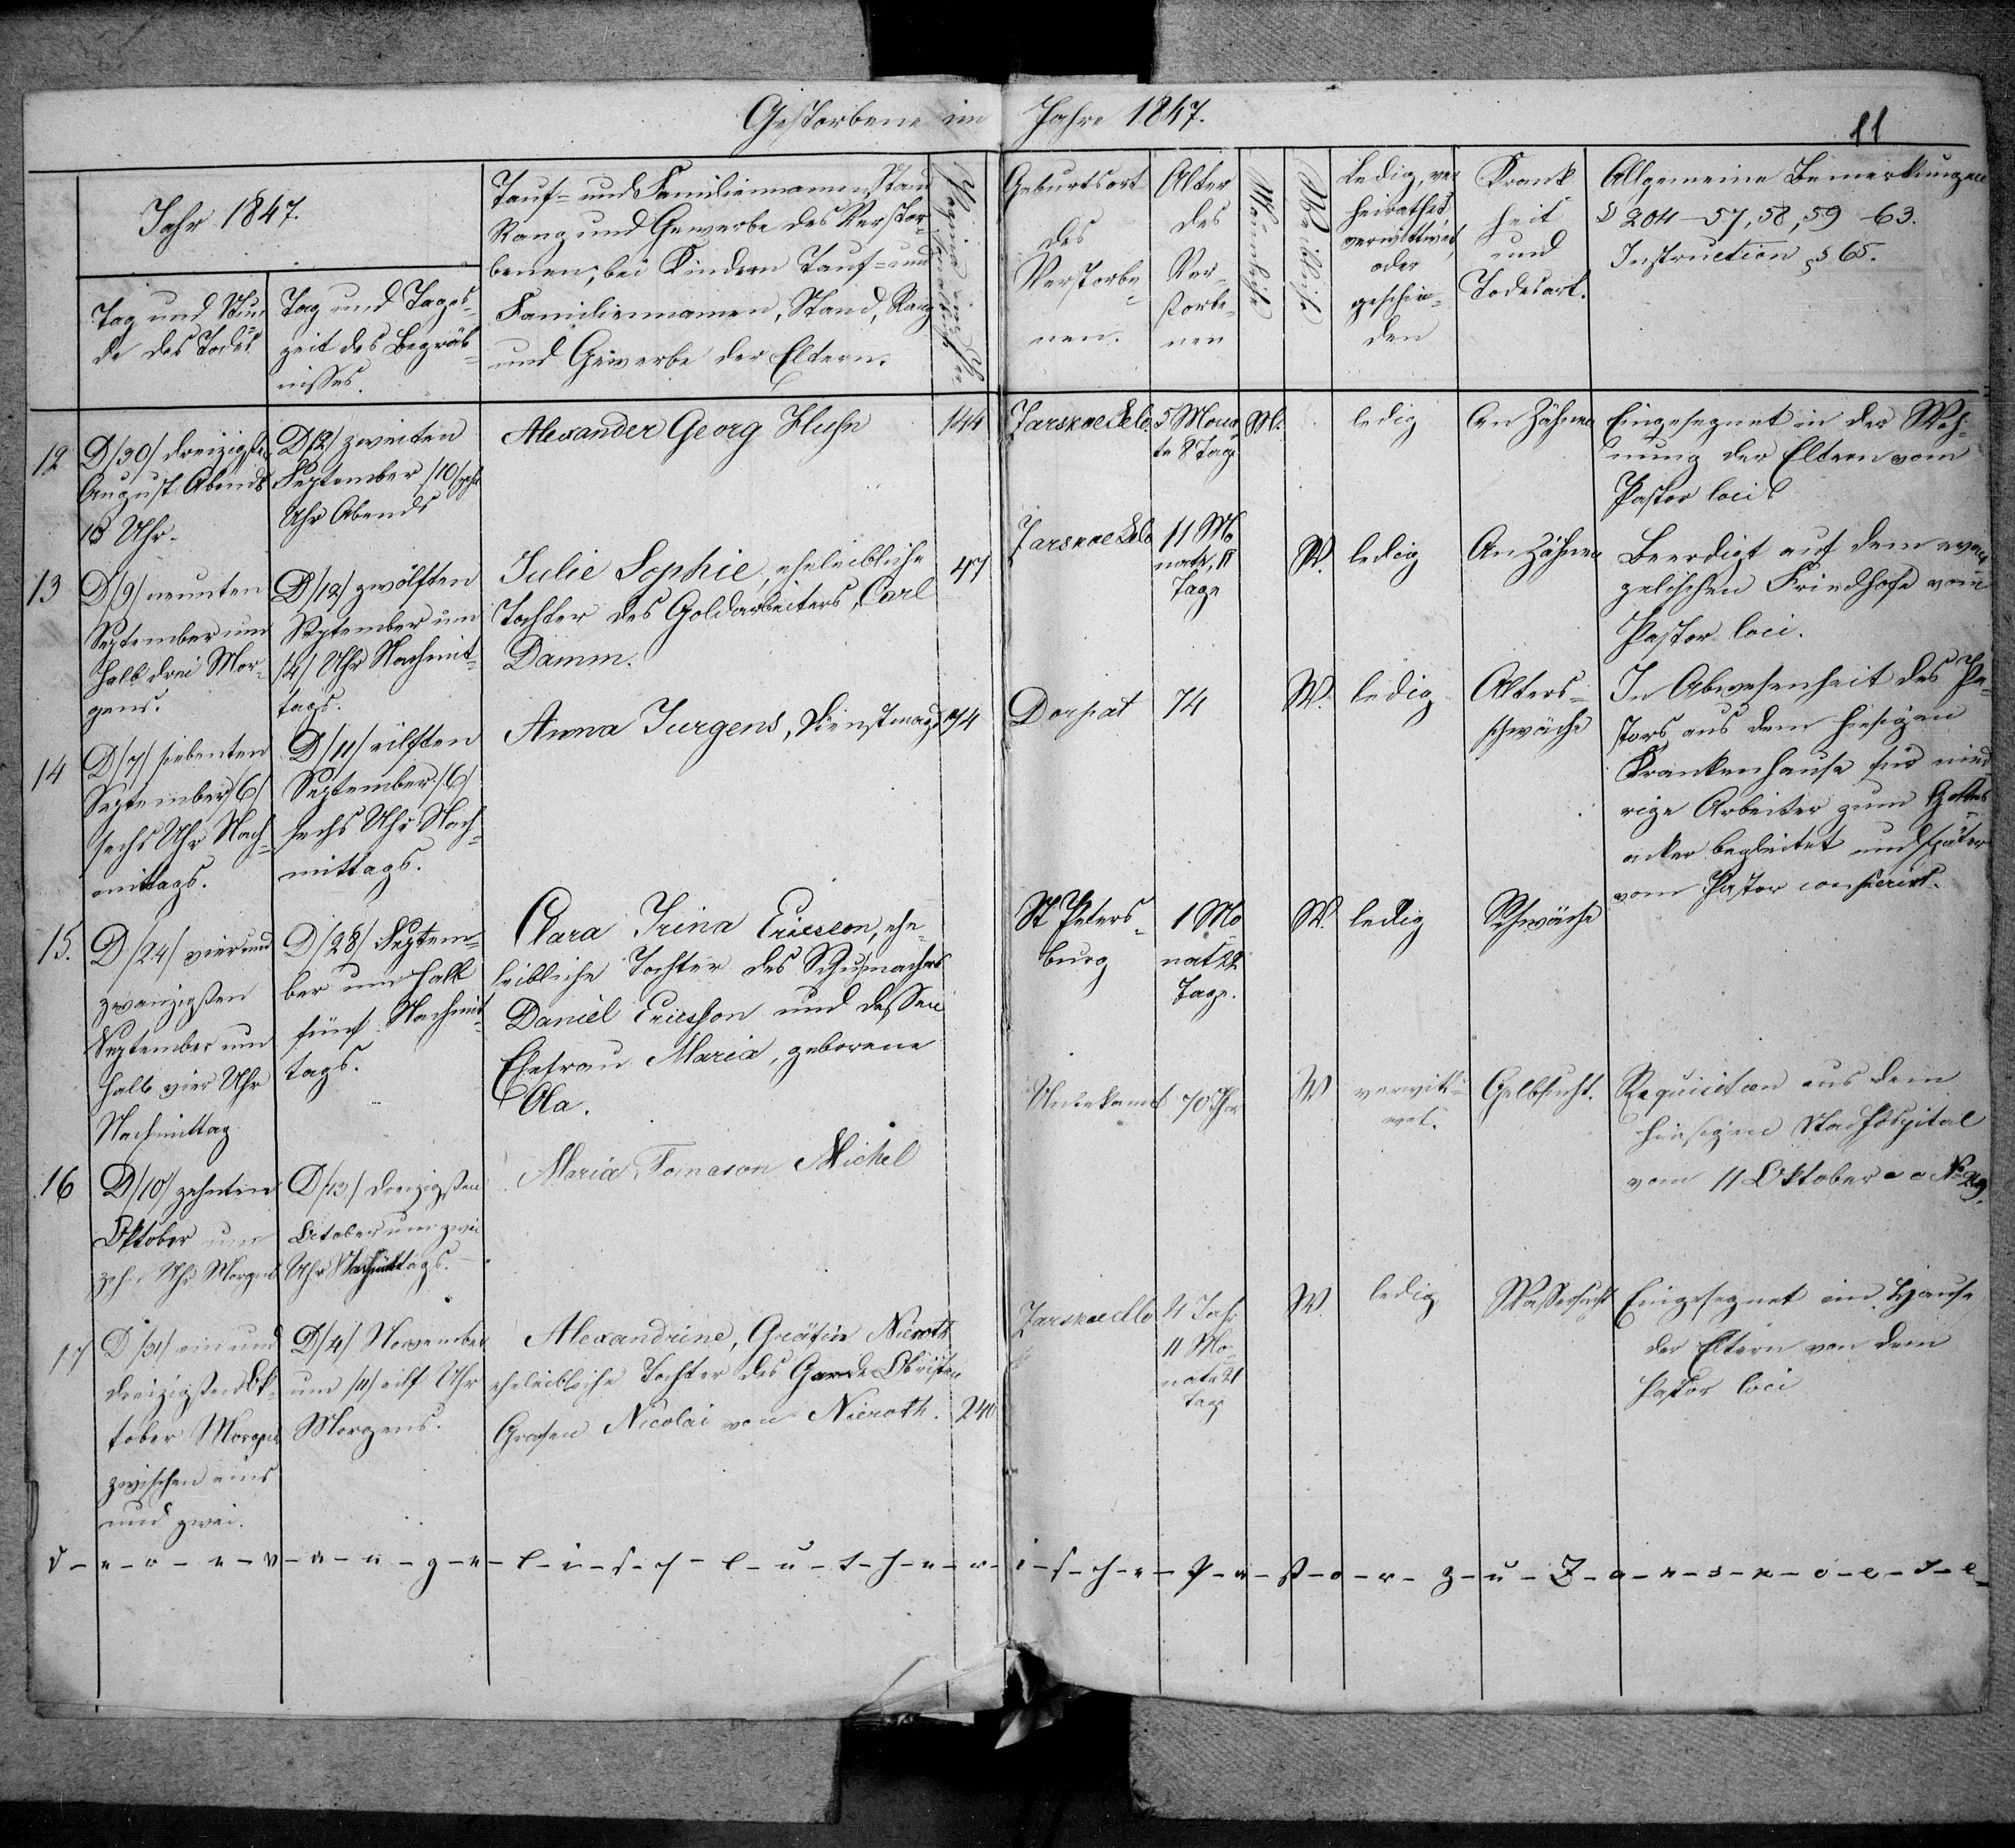 Gestorbene im Jahre 1847.
11
Jahr 1847.
Tag und Stun
de des Todes
Tag und Tages-
zeit des Begräb-
nisses.
Tauf- und Familiennamen, Stand
Rang und Gewerbe des Verstor-
benen; bei Kindern Tauf- und
Familiennamen, Stand, Rang
und Gewerbe der Eltern.
Geburtsort
des
Verstorbe-
nen.
Alter
des
Ver-
storbe-
nen
Männliche
Weibliche
Ledig, ver
heirathet,
verwittwet,
oder
geschie-
den
Krank
heit
und
Todesart.
Allgemeine Bemerkungen
§ 204-57, 58, 59 -63.
Instruction § 65.
12
D /30/ dreizigsten
August Abends
10 Uhr.
D /2/ zweiten
September /10/ zehn
Uhr Abends
Alexander Georg Huhn
144
Zarskoe Selo.
5 Mona
te 8 Tage
M.
ledig
An Zähnen
Eingesegnet in der Woh-
nung der Eltern vom
Pastor loci
13
D /9/ neunten
September um
halb drei Mor-
gens.
D /12/ zwölften
September um
/4/ Uhr Nachmit-
tags.
Julie Sophie, eheleibliche
Tochter des Goldarbeiters, Carl
Damm.
47
Zarskoe Selo
11 Mo
nate, 11
Tage
W.
ledig
An Zähnen
Beerdigt auf dem evan
gelischen Friedhofe vom
Pastor loci.
14
D /7/ siebenten
September /6/
sechs Uhr Nach-
mittags.
D /11/ eilften
September /6/
sechs Uhr Nach-
mittags.
Anna Jurgens, Dienstmagd
94
Dorpat
74
W.
ledig
Alters-
schwäche
In Abwesenheit des Pa-
stors aus dem hiesigen
Krankenhause für nied
rige Arbeiter zum Gottes
acker begleitet und später
vom Pastor
15.
D /24/ vierund
zwanzigsten
September um
halb vier Uhr
Nachmittag
D /28/ Septem-
ber um halb
fünf Nachmit-
tags.
Clara Irina Ericsson, ehe-
leibliche Tochter des Schumachers
Daniel Ericsson und dessen
Ehefrau Maria, geborene
Ola.
St Peters-
burg
1 Mo
nat 22
Tage.
W.
ledig
Schwäche
16
D /10/ zehnten
Oktober um
zehn Uhr Morgens
D /13/ dreizigsten
October um zwei
Uhr Nachmittags.
Maria Tomason Michel
Unbekannt
70 Jhr
W
verwitt-
wet.
Gelbsucht.
Requisition aus dem
hiesigen Stadhospital
vom 11 Oktober a c № 29.
17
D /31/ ein und
dreizigsten Ok-
tober Morgens
zwischen eins
und zwei.
D /4/ November
um /11/ eilf Uhr
Morgens.
Alexandrine, Gräfin Nieroth
eheleibliche Tochter des Garde Obristen
Grafen Nicolai von Nieroth.
240
Zarskoe Selo
4 Jahr
11 Mo-
nate 21
Tage
W.
ledig
Wassersucht
Eingesegnet im Hause
der Eltern von dem
Pastor loci
d-e-r-e-v-a-n-g-e-l-i-s-c-h-l-u-t-h-e-r-i-s-c-h-e-P-a-st-o-r-z-u-Z-a-r-s-k-o-e-S-e-